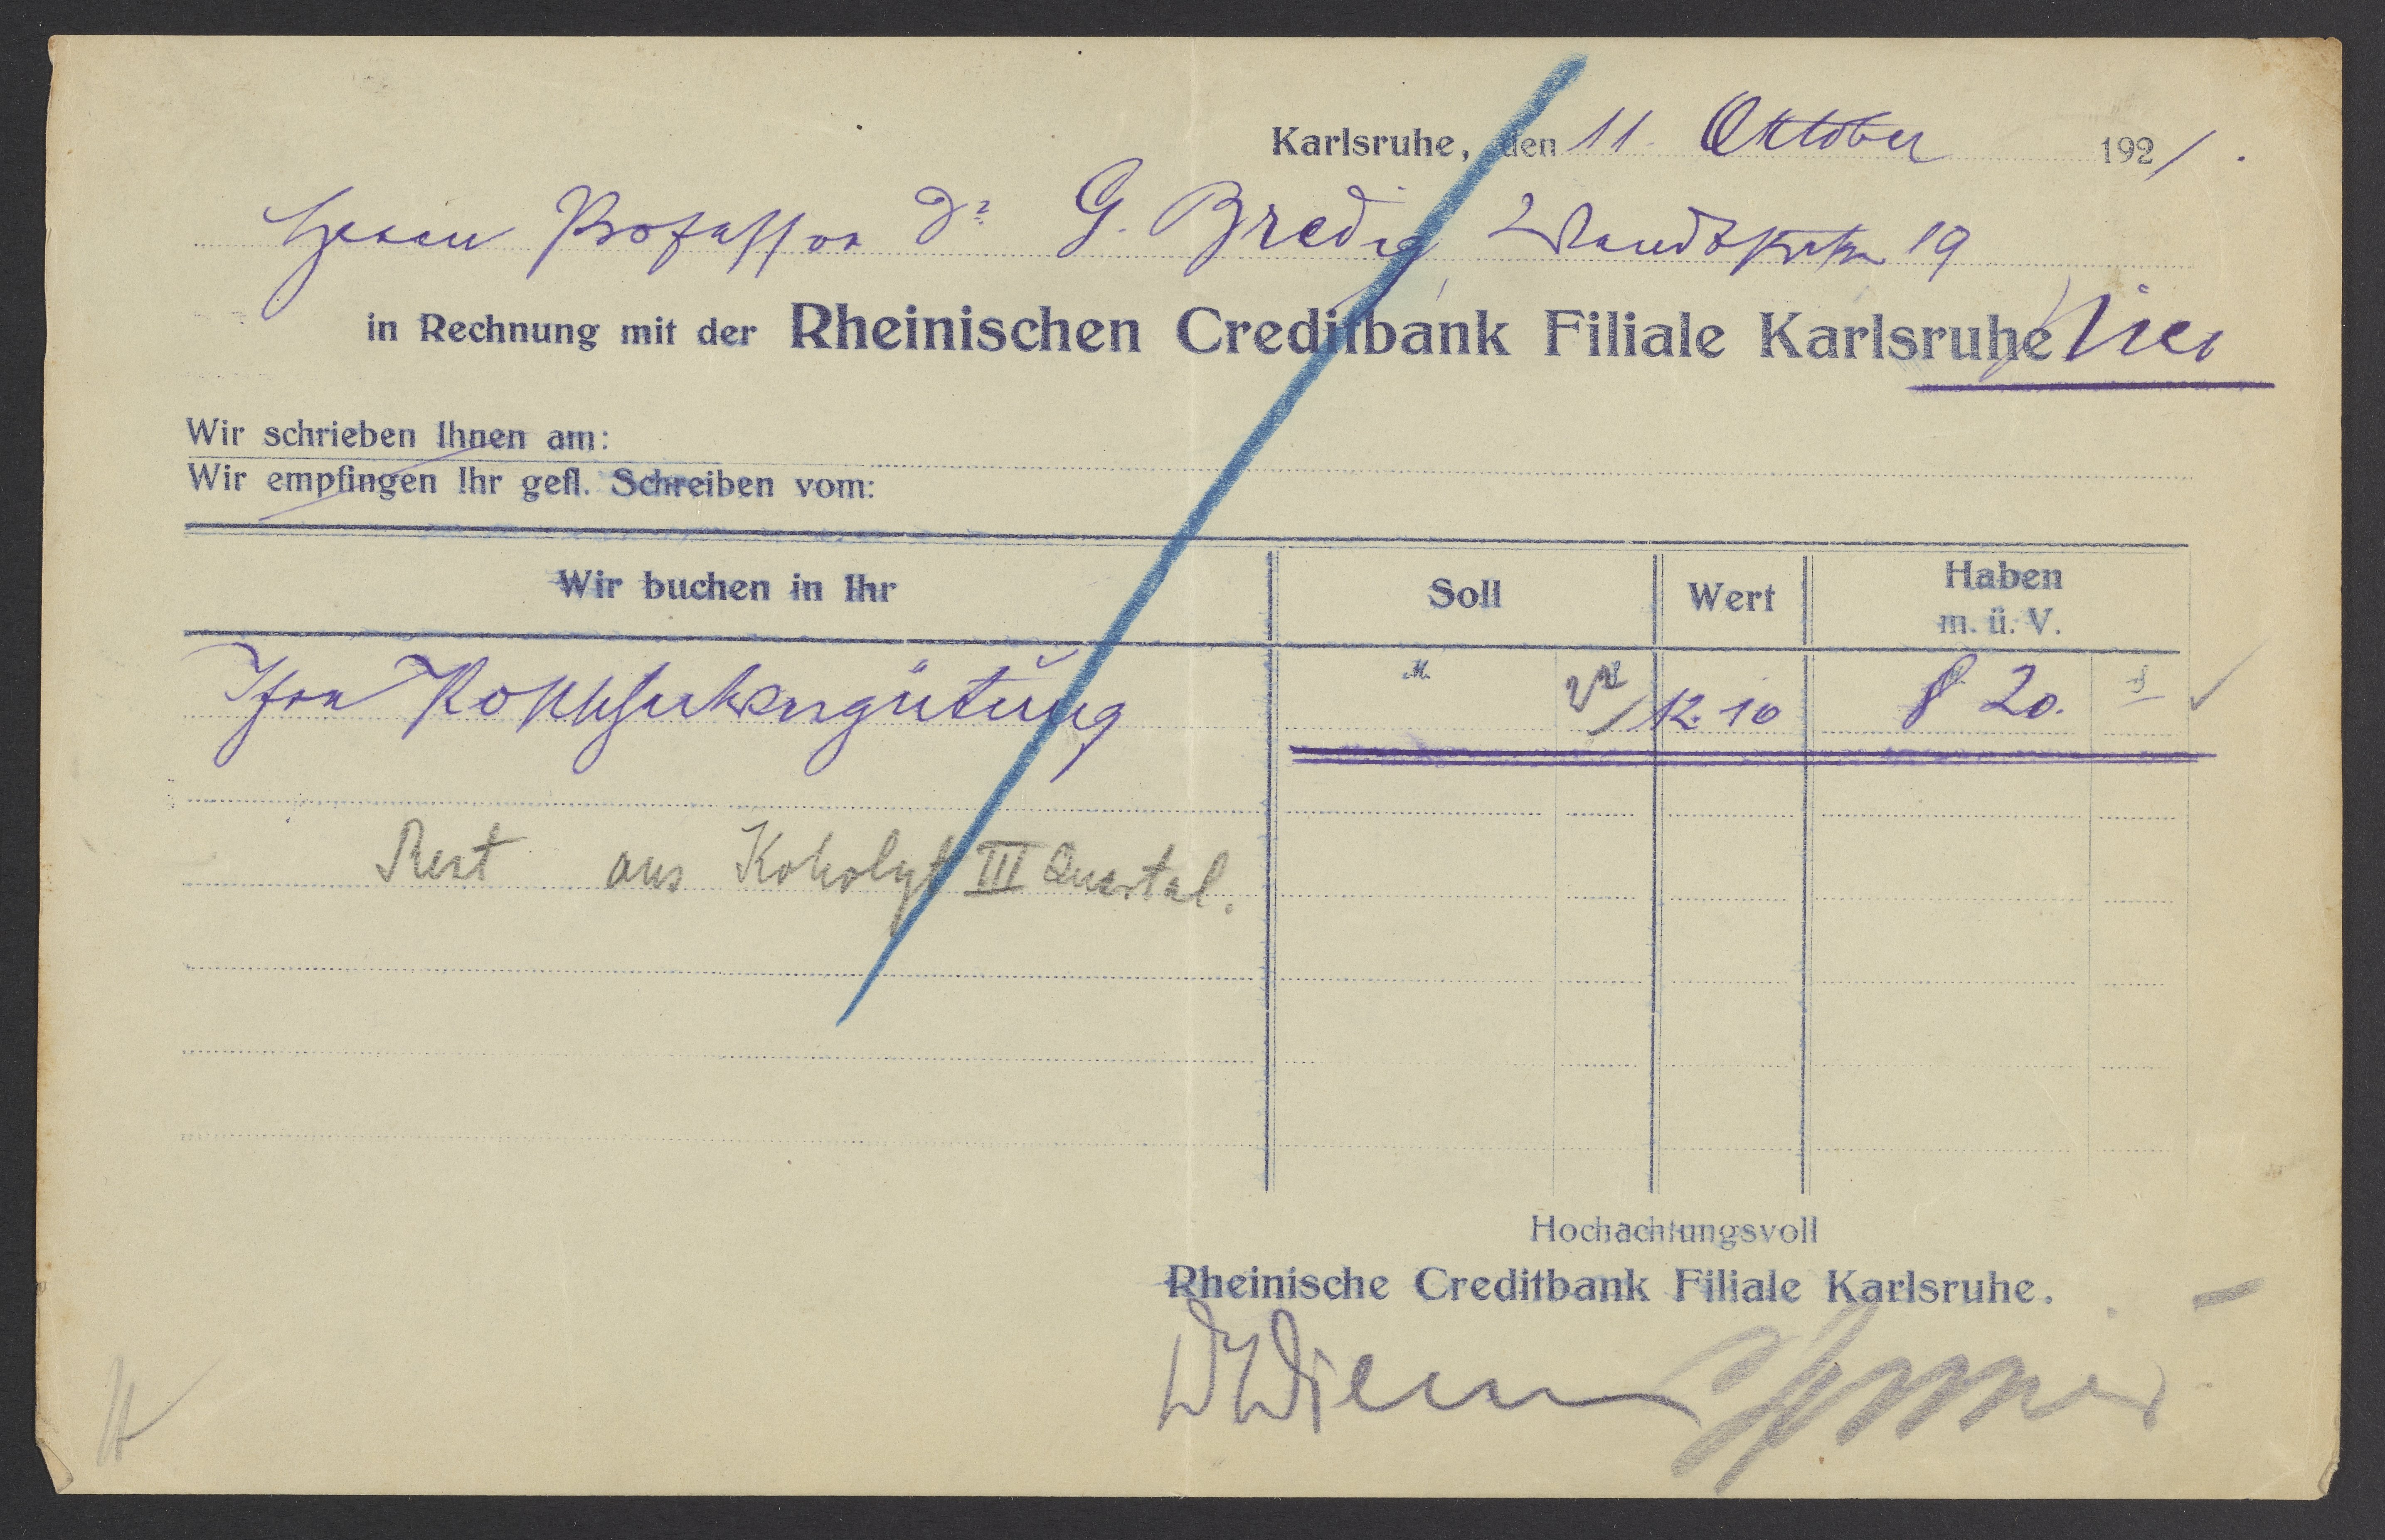 Karlsruhe, den 11. Oktober 1921.
Herrn Professor Dr G. Bredig, 19
in Rechnung mit der Rheinischen Creditbank Filiale Karlsruhe hier
Wir schrieben Ihnen am:
Wir empfingen Ihr gefl. Schreiben vom:
Wir buchen in Ihr Soll Wert Haben
m. ü. V.
Ihre M. 12. 10 8 20.
Rest aus III Quartal.
Hochachtungsvoll
Rheinische Creditbank Filiale Karlsruhe.